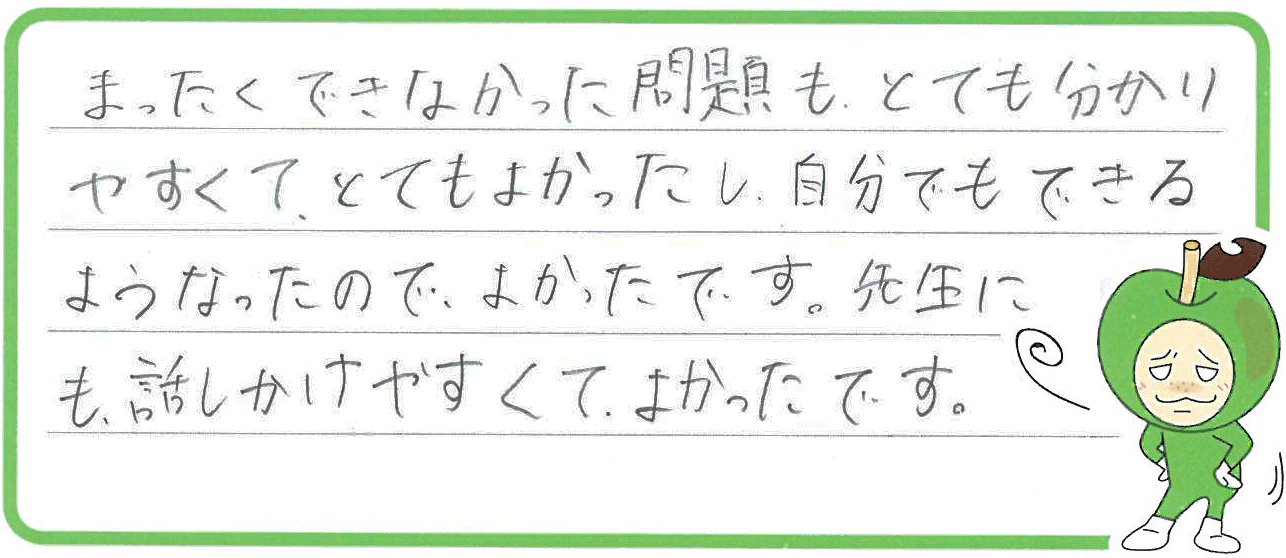 まったくできなかった問題も、とても分かり
やすくて、とてもよかったし、自分でもできる
ようなったので、よかったです。先生に
も、話しかけやすくて、よかったです。